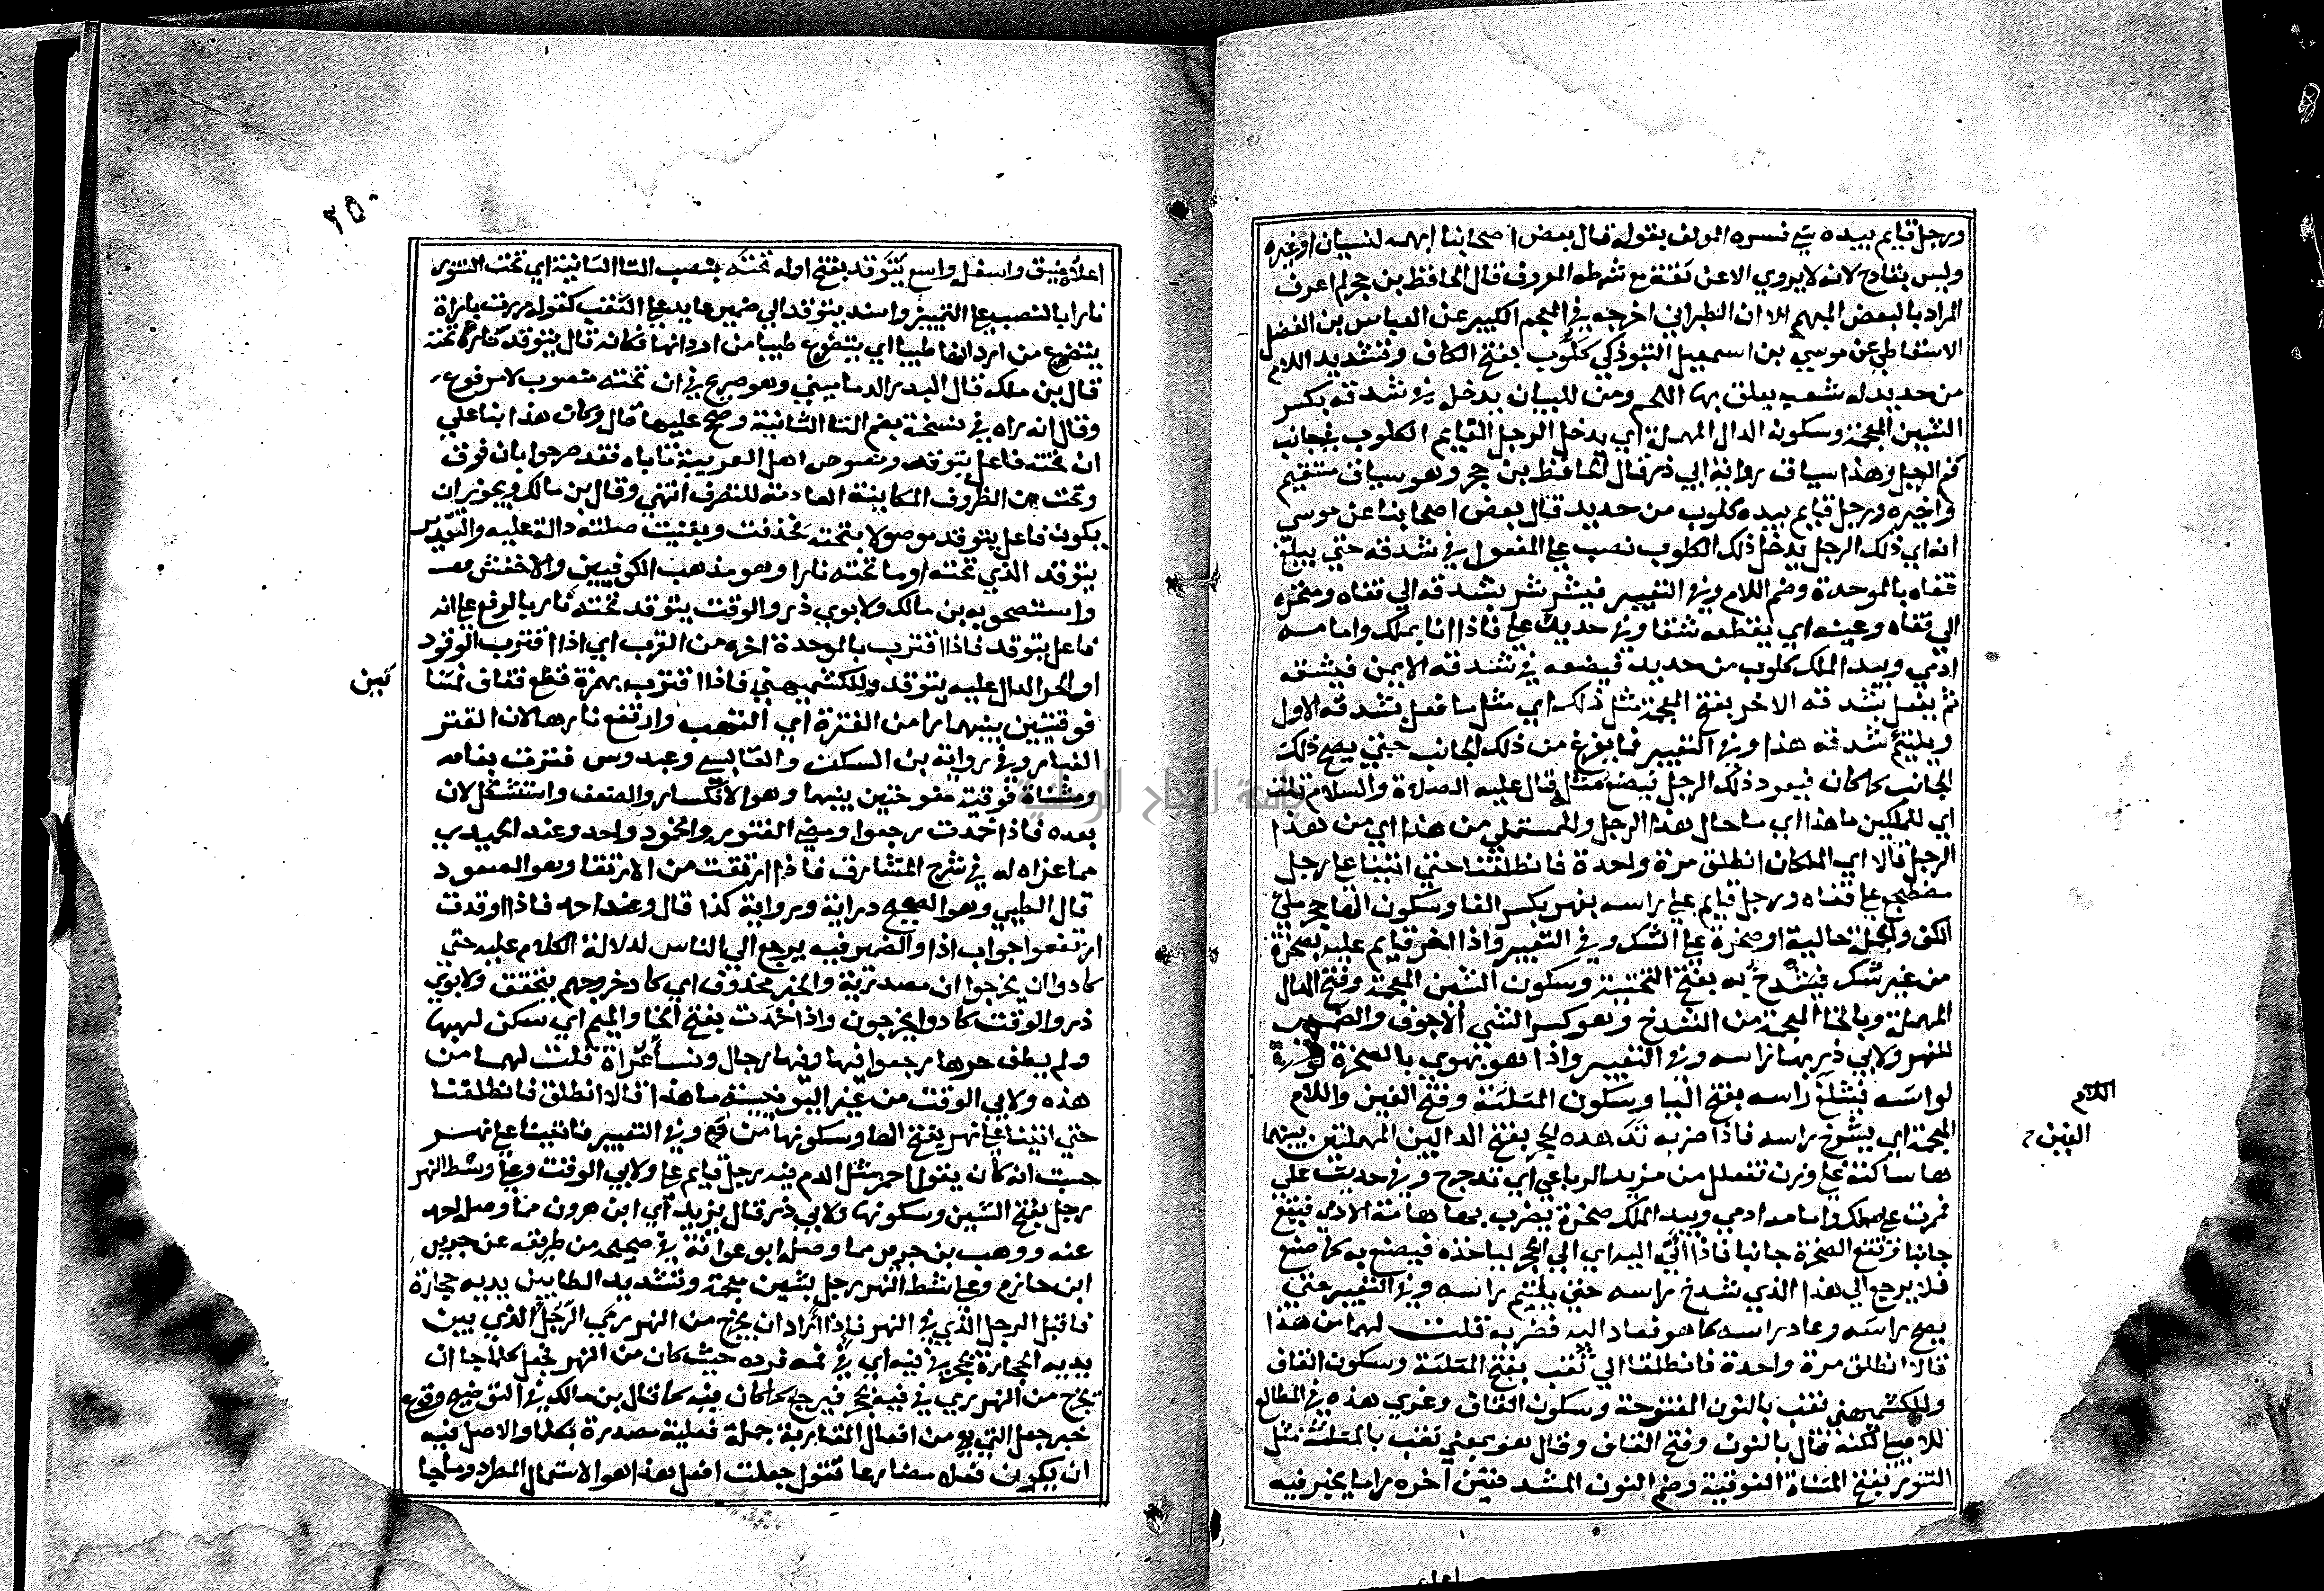 ورجل قايم بيده شي فسره المولف بقوله قال بعض اصحابنا ابهمه لنسيان او غيره
وليس بقادح لانه لا يروي الا عن ثقة مع شرطه المعروف قال الحافظ بن حجر لم اعرف
المراد بالبعض المبهم الا ان الطبراني اخرجه في المعجم الكبير عن العباس بن الفضل
الاسفاطي عن موسي بن اسمعيل التبوذكي كلوب بفتح الكاف وتشديد اللام
من حديد له شعب يعلق بها اللحم ومن للبيان يدخل في شدقه بكسر
الشين المعجمة وسكون الدال المهملة اي يدخل الرجل القايم الكلوب في جانب
فم الرجل وهذا سياق رواية ابي ذر قال الحافظ بن حجر وهو سياق مستقيم
ولغيره ورجل قايم بيده كلوب من حديد قال بعض اصحابنا عن موسي
انه اي ذلك الرجل يدخل ذلك الكلوب نصب علي المفعول في شدقه حتي يبلغ
قفاه بالموحدة وضم اللام وفي التعبير فيشرشر شدقه الي قفاه ومنخره
الي قفاه وعينه اي يقطعه شقا وفي حديث علي فاذا انا بملك وامامه
ادمي وبيد الملك كلوب من حديد فيضعه في شدقه الايمن فيشقه
ثم يفعل بشدقه الاخر بفتح المعجمة مثل ذلك اي مثل ما فعل بشدقه الاول
ويلتئم شدقه هذا وفي التعبير فما يفرغ من ذلك الجانب حتي يصح ذلك
الجانب كما كان فيعود ذلك الرجل فيصنع مثله قال عليه الصلاة والسلام قلت
اي للملكين ما هذا اي ما حال هذا الرجل وللمستملي من هذا اي من هذا
الرجل قالا اي الملكان انطلق مرة واحدة فانطلقنا حتي اتينا علي رجل
مضطجع علي قفاه ورجل قايم علي راسه بفهر بكسر الفا وسكون الها حجر ملئ
الكف والجملة حالية او صخرة علي الشك وفي التعبير واذا اخر قايم عليه بصخرة
من غير شك فيشدخ به بفتح التحتية وسكون الشين المعجمة وفتح الدال
المهملة وبالخا المعجمة من الشدخ وهو كسر الشي الاجوف والضمير
للفهر ولابي ذر بها راسه وفي التعبير واذا هو يهوي بالصخرة
لراسه فيثلغ راسه بفتح اليا وسكون المثلثة وفتح الغين واللام
المعجمة اي يشدخ راسه فاذا ضربه تدهده الحجر بفتح الدالين المهملتين بينهما
ها ساكنة علي وزن تفعلل من مزيد الرباعي اي تدحرج وفي حديث علي
فمرت علي ملك وامامه ادمي وبيد الملك صخرة يضرب بها هامة الادمي فيقع
جانبا وتقع الصخرة جانبا فاذا اليه اي الي الحجر لياخذه فيصنع به كما صنع
فلا يرجع الي هذا الذي شدخ راسه حتي يلتئم راسه وفي التعبير حتي
يصح راسه وعاد راسه كما هو فعاد اليه فضربه قلت لهما من هذا
قالا انطلق مرة واحدة فانطلقنا الي ثقب بفتح المثلثة وسكون القاف
وللكشميهني نقب بالنون المفتوحة وسكون القاف وعزي هذه في المطالع
للاصيلي لكنه قال بالنون وفتح القاف وقال هو بمعني ثقب بالمثلثة مثل
التنور بفتح المثناة الفوقية وضم النون المشددة اخره را ما يخبز فيه
اللام
الغين
٢٥٠
اعلاه ضيق واسفله واسع يتوقد بفتح اوله تحته بنصب التا الثانية اي تحت التنور
نارا بالنصب علي التمييز واسند يتوقد الي ضمير عايد علي الثقب كقوله مررت بامراة
يتضوع من اردانها طيبا اي يتضوع طيبا من اردانها فكانه قال يتوقد ناره تحته
قال بن ملك قال البدر الدماميني وهو صريح في ان تحته منصوب لا مرفوع
وقال انه راه في نسخة بضم التا الثانية وصح عليها قال وكان هذا بنا علي
ان تحته فاعل يتوقد ونصوص اهل العربية تاباه فقد صرحوا بان فوق
وتحت من الظروف المكانية العادمة للتصرف انتهي وقال بن مالك ويجوز ان
يكون فاعل يتوقد موصولا بتحته فحذفت وبقيت صلته دالة عليه والتقدير
يتوقد الذي تحته او ما تحته نارا وهو مذهب الكوفيين والاخفش
واستصوبه بن مالك ولابوي ذر والوقت يتوقد تحته نار بالرفع علي انه
فاعل يتوقد فاذا اقترب بالموحدة اخره من القرب اي اذا اقترب الوقود
او الحر الدال عليه يتوقد وللكشميهني فاذا اقترب بهمزة قطع فقاف فتا
فوقيتين بينهما را من القترة اي التهب وارتفع نارها لان القتر
الغبار وفي رواية بن السكن والقابسي وعبدوس فترت بفا
ومثناة فوقية مفتوحتين بينهما وهو الانكسار والضعف واستشكل لان
بعده فاذا خمدت رجعوا ومعني الفتور والخمود واحد وعند الحميدي
مما عزاه له في شرح المشارق فاذا ارتقت من الارتقا وهو الصعود
قال الطيبي وهو الصحيح دراية ورواية كذا قال وعند احمد فاذا اوقدت
ارتفعوا جواب اذا والضمير فيه يرجع الي الناس لدلالة الكلام عليه حتي
كادوا ان يخرجوا ان مصدرية والخبر محذوف اي كاد خروجهم يتحقق ولابوي
ذر والوقت كادوا يخرجون واذا خمدت بفتح الخا والميم اي سكن لهبها
ولم يطف حرها رجعوا فيها وفيها رجال ونسا عراة قلت لهما من
هذه ولابي الوقت من غير اليونينية ما هذا قالا انطلق فانطلقنا
حتي اتينا علي نهر بفتح الها وسكونها من دم وفي التعبير فاتينا علي نهر
حسبت انه كان يقول احمر مثل الدم فيه رجل قايم علي ولابي الوقت وعلي وسط النهر
رجل بفتح السين وسكونها ولابي ذر قال يزيد اي ابن هرون مما وصله احمد
عنه ووهب بن جرير مما وصله ابو عوانة في صحيحه من طريقه عن جرير
ابن حازم وعلي شط النهر رجل بشين معجمة وتشديد الطا بين يديه حجارة
فاقبل الرجل الذي في النهر فاذا اراد ان يخرج من النهر رمي الرجل الذي بين
يديه الحجارة بحجر في فيه اي في فمه فرده حيث كان من النهر فجعل كلما جا ان
يخرج من النهر رمي في فيه بحجر فيرجع كما كان فيه كما قال بن مالك في التوضيح وقوع
خبر جعل التي هي من افعال المقاربة جملة فعلية مصدرة بكلما والاصل فيه
ان يكون فعلا مضارعا تقول جعلت افعل هذا هو الاستعمال المطرد وما جا